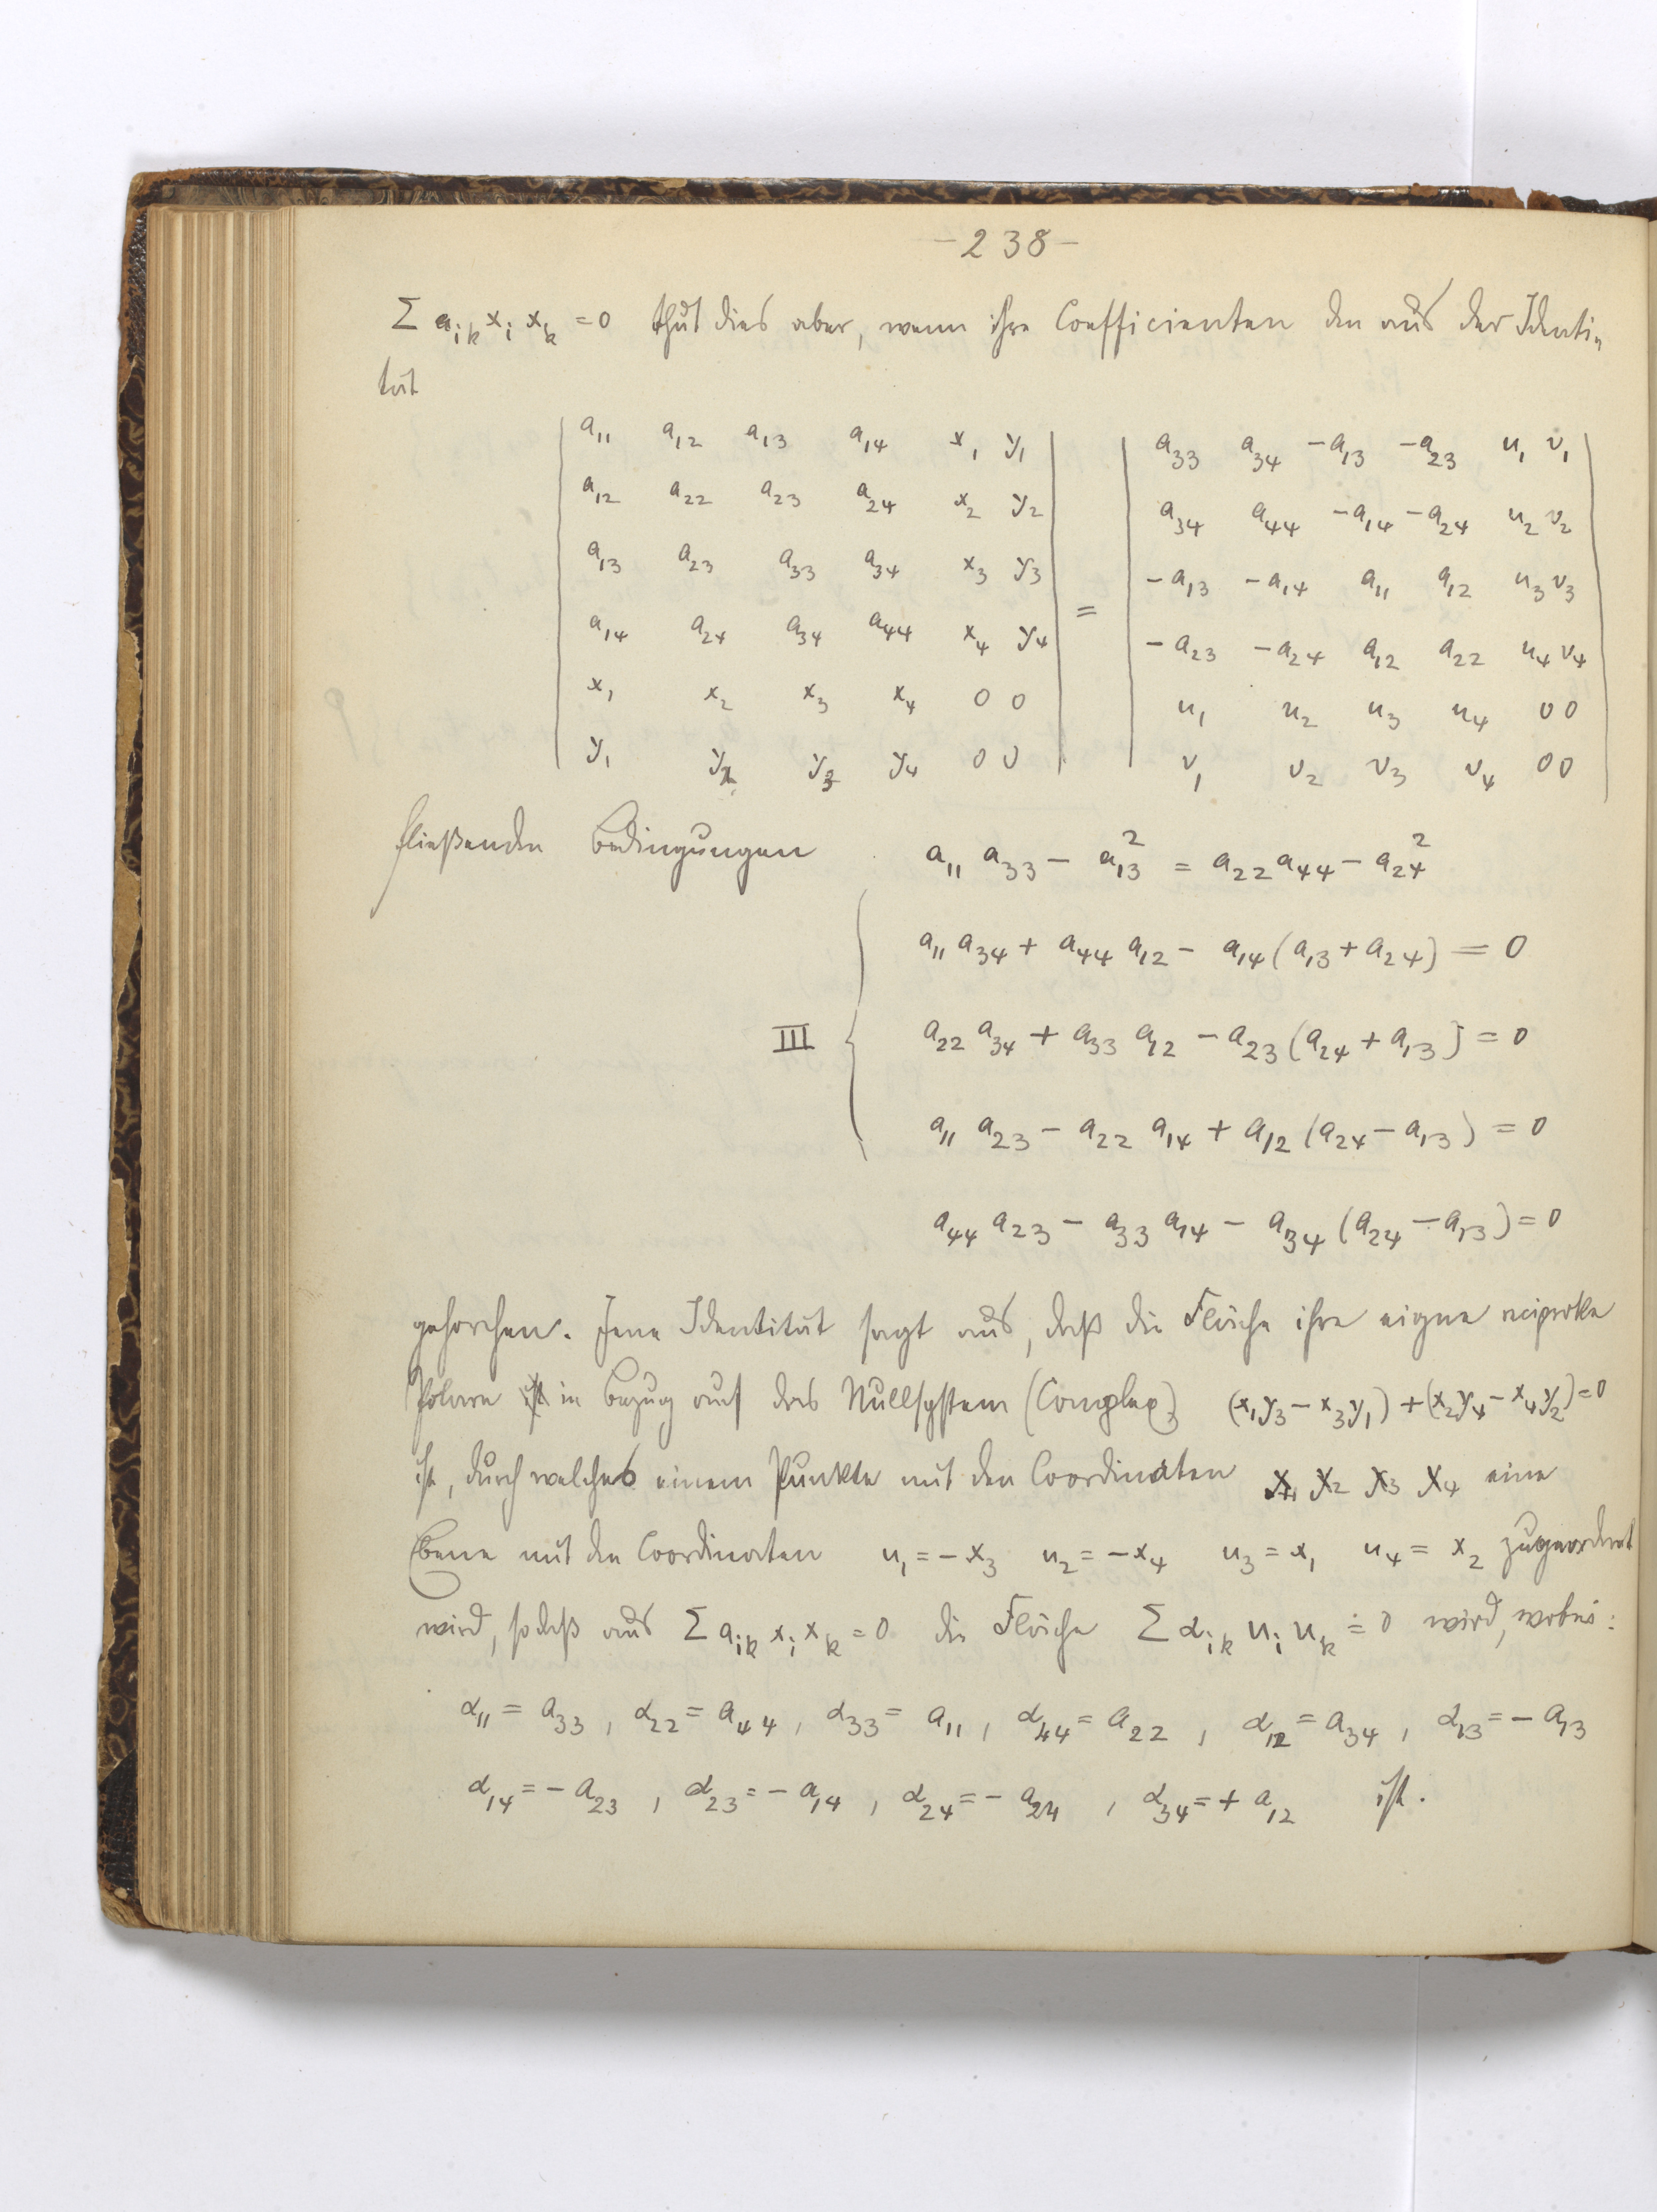 -238-
Σ a_{ik} x_i x_k = 0 thut dies aber, wenn ihre Coefficienten den aus der Identi-
tät
| a_{11} a_{12} a_{13} a_{14} x_1 y_1 | | a_{33} a_{34} -a_{13} -a_{23} u_1 v_1 |
| a_{12} a_{22} a_{23} a_{24} x_2 y_2 | | a_{34} a_{44} -a_{14} -a_{24} u_2 v_2 |
| a_{13} a_{23} a_{33} a_{34} x_3 y_3 | | -a_{13} -a_{14} a_{11} a_{12} u_3 v_3 |
| a_{14} a_{24} a_{34} a_{44} x_4 y_4 | = | -a_{23} -a_{24} a_{12} a_{22} u_4 v_4 |
| x_1 x_2 x_3 x_4 0 0 | | u_1 u_2 u_3 u_4 0 0 |
| y_1 y_2 y_3 y_4 0 0 | | v_1 v_2 v_3 v_4 0 0 |
fließenden Bedingungen a_{11} a_{33} - a_{13}^2 = a_{22} a_{44} - a_{24}^2
a_{11} a_{34} + a_{44} a_{12} - a_{14} (a_{13} + a_{24}) = 0
III { a_{22} a_{34} + a_{33} a_{12} - a_{23} (a_{24} + a_{13}) = 0
a_{11} a_{23} - a_{22} a_{14} + a_{12} (a_{24} - a_{13}) = 0
a_{44} a_{23} - a_{33} a_{14} - a_{34} (a_{24} - a_{13}) = 0
gehorchen. Jene Identität sagt aus, daß die Fläche ihre eigne reciproke
Polare in Bezug auf das Nullsystem (Complex) (x_1 y_3 - x_3 y_1) + (x_2 y_4 - x_4 y_2) = 0
ist, durch welches einem Punkte mit den Coordinaten x_1 x_2 x_3 x_4 eine
Ebene mit den Coordinaten u_1 = -x_3 u_2 = -x_4 u_3 = x_1 u_4 = x_2 zugeordnet
wird, sodaß aus Σ a_{ik} x_i x_k = 0 die Fläche Σ α_{ik} u_i u_k = 0 wird, wobei:
α_{11} = a_{33}, α_{22} = a_{44}, α_{33} = a_{11}, α_{44} = a_{22}, α_{12} = a_{34}, α_{13} = -a_{13}
α_{14} = -a_{23}, α_{23} = -a_{14}, α_{24} = -a_{24}, α_{34} = +a_{12} ist.